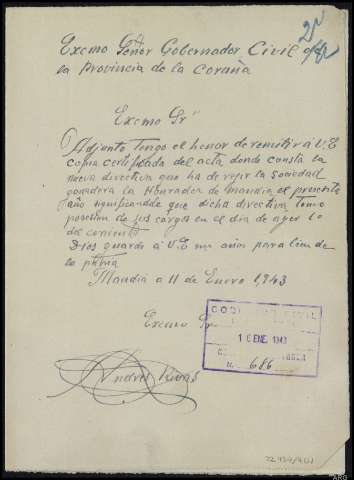 2ª
Excmo Señor Gobernador Civil de
la Provincia de la Coruña
Excmo Srº
Adjunto tengo el honor de remitir á V.E
copia certificada del acta donde consta la
nueva directiva que ha de regir la Sociedad
ganadera la Honradez de Maniña el presente
año significandole que dicha directiva tomo
posesion de sus cargos en el dia de ayer 10
del corriente
Dios guarde á V.E ms años para bien de
la pátria
á 11 de Enero 1,943
Excmo Sr
GOBIERNO CIVIL
16 ENE. 1943
N. 686
Andres Rivas